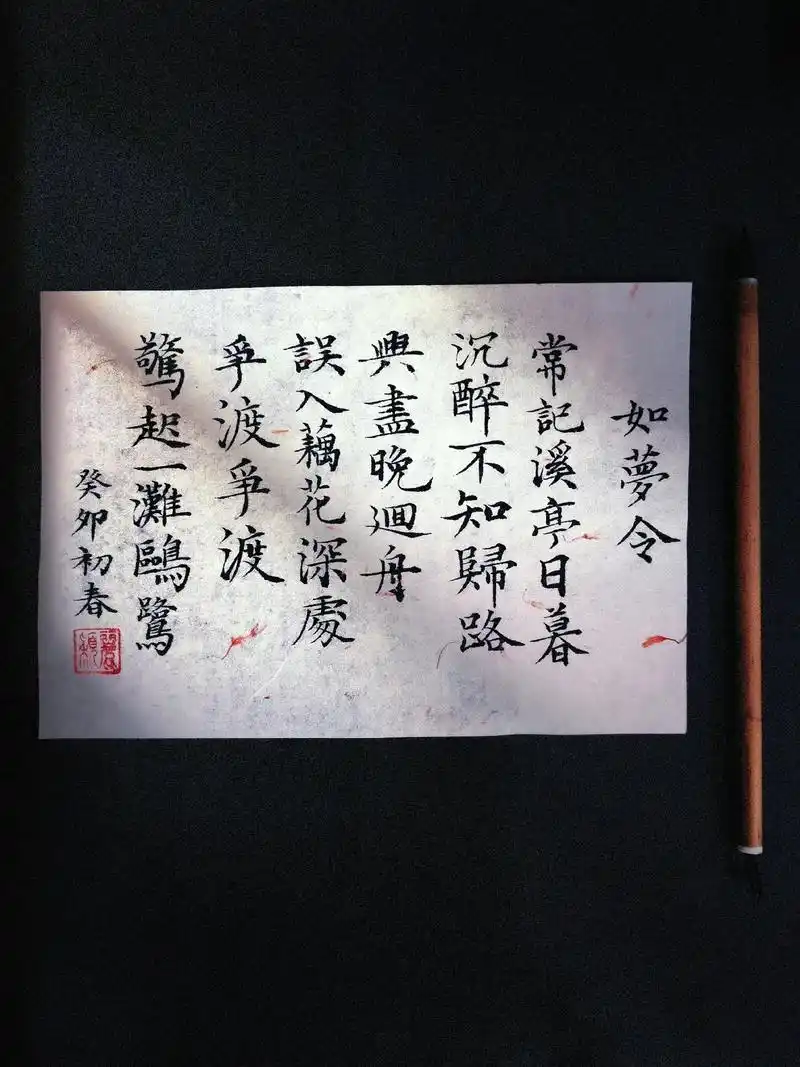 如夢令
常記溪亭日暮
沉醉不知歸路
興盡晚迴舟
誤入藕花深處
爭渡爭渡
驚起一灘鷗鷺
癸卯初春